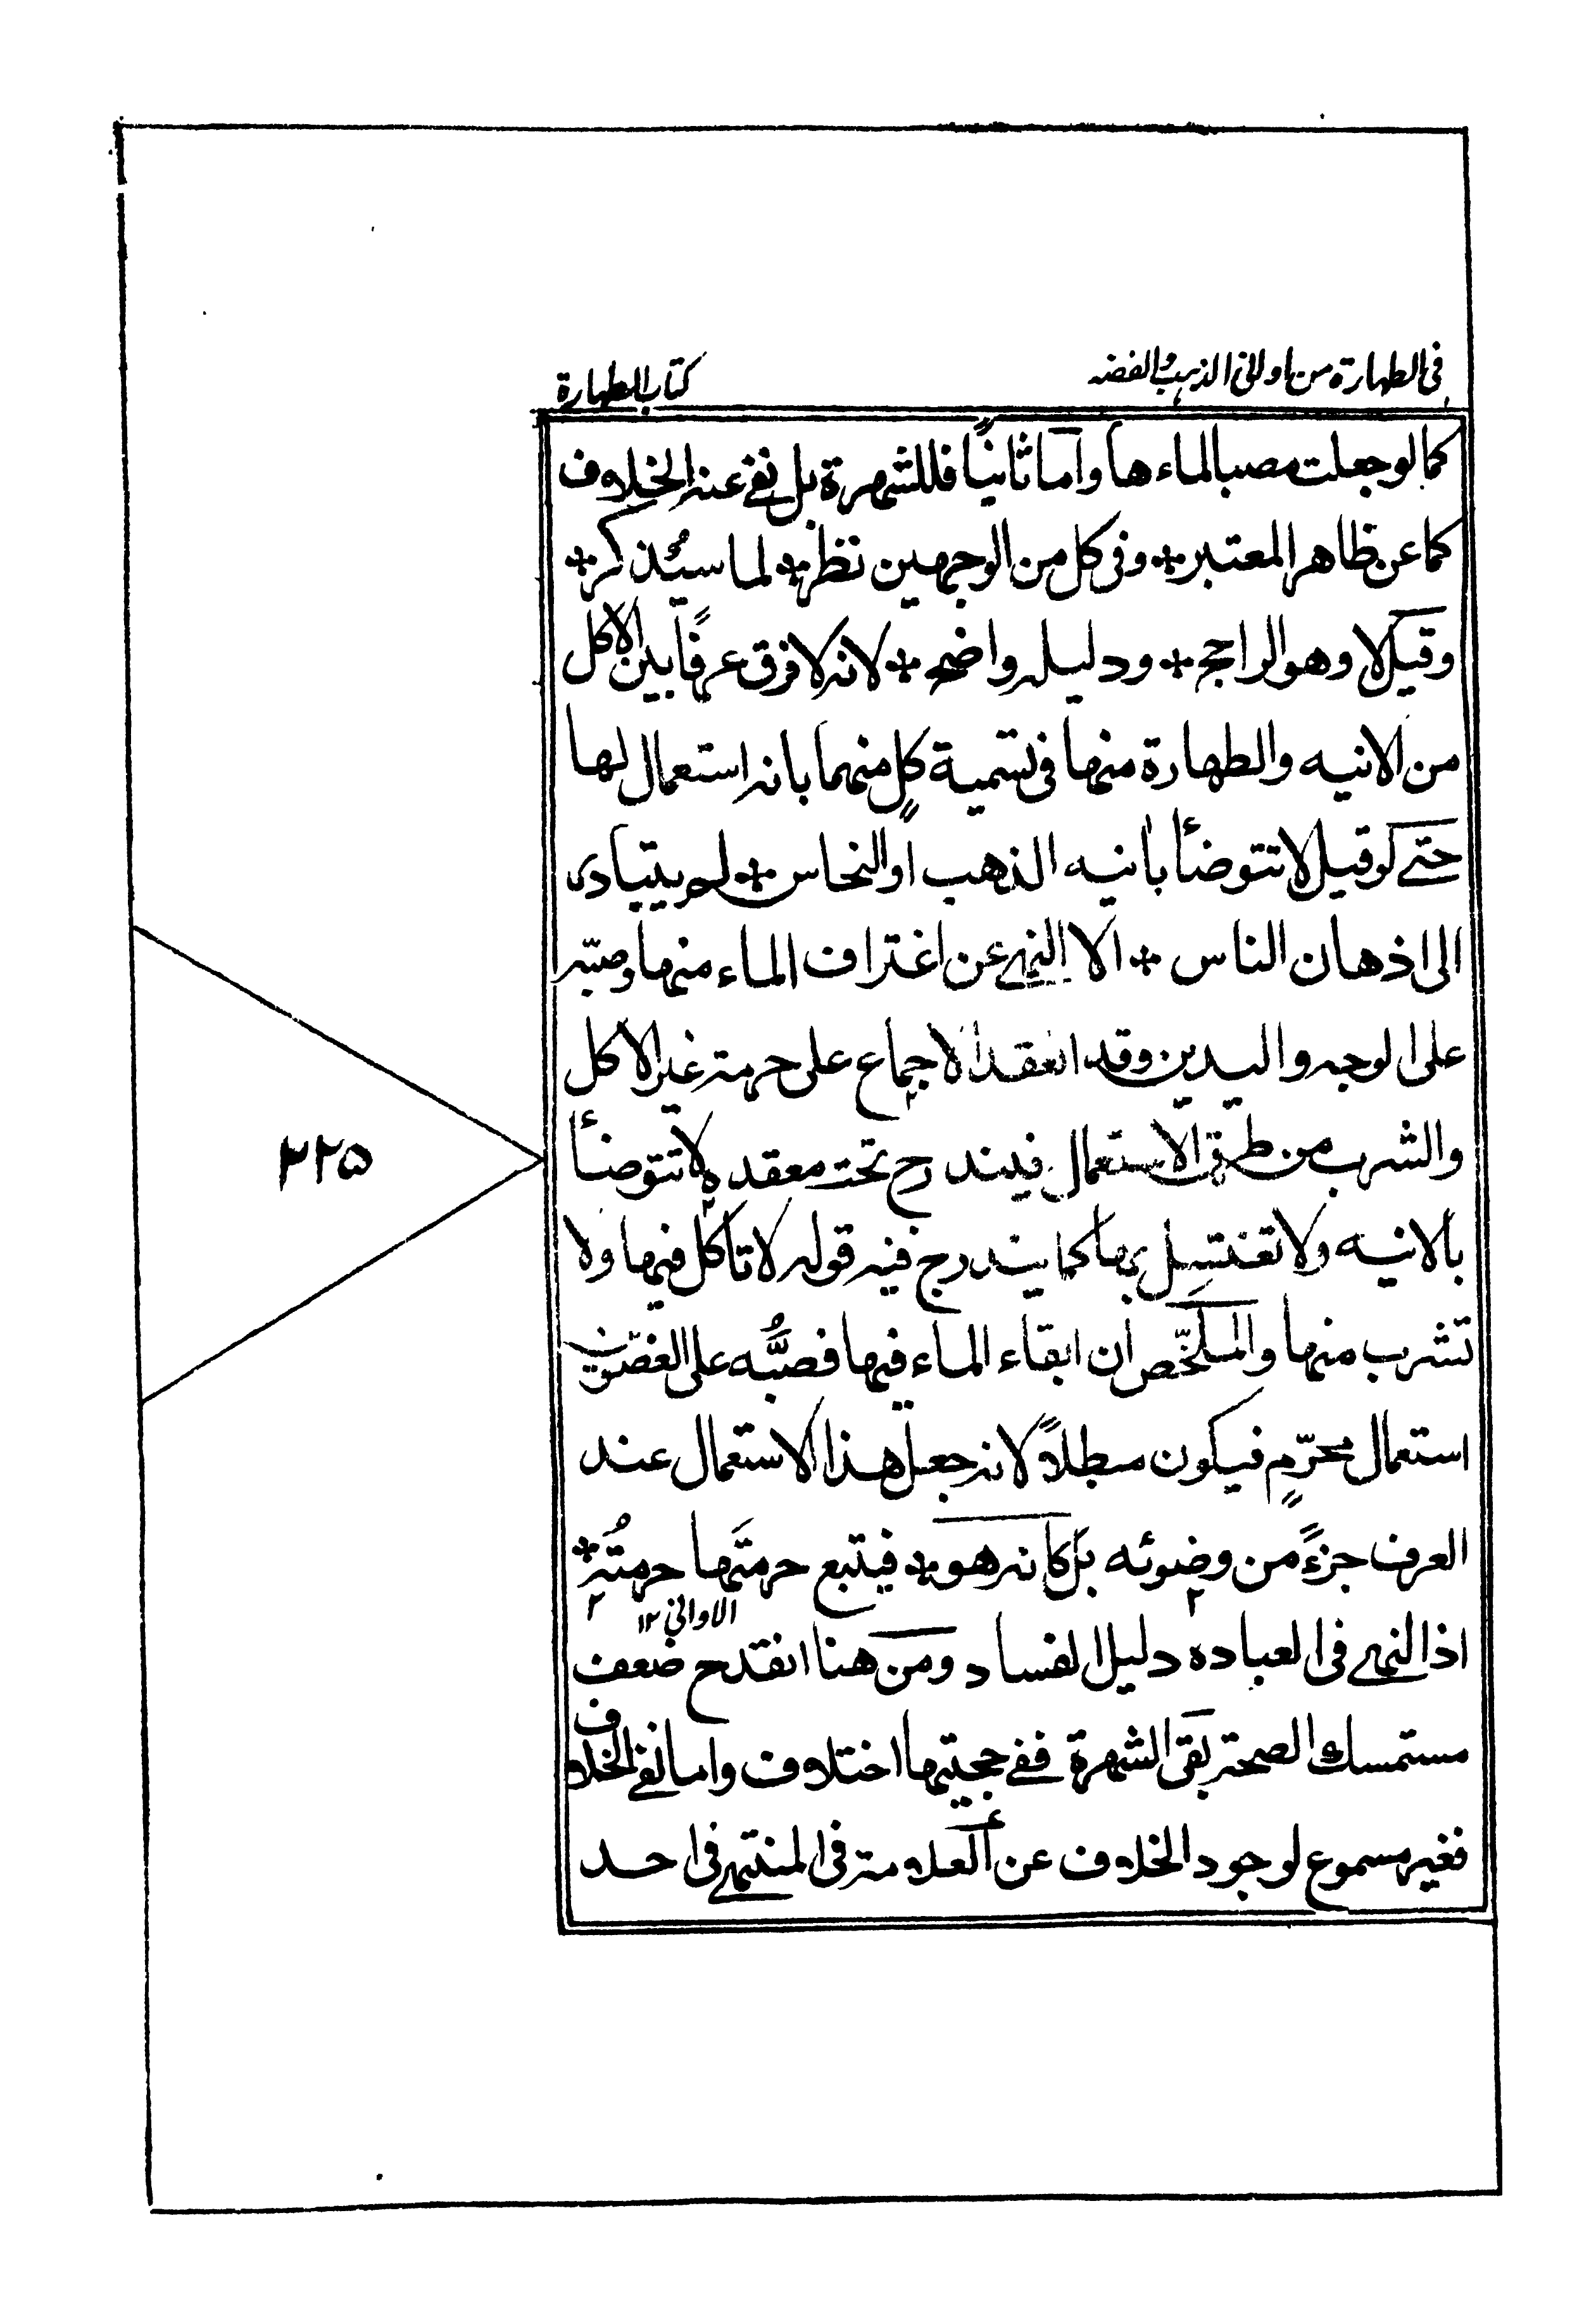 فى الطهارة من اوانى الذهب والفضه
كتاب الطهارة
كما لو جعلت مصبا لماءها وآما ثانيًا فللشهرة بل نفى عنه الخلاف
كما عن ظاهر المعتبر * وفى كل من الوجهين نظر * لما سيُذكر *
وقيل لا وهو الراجح * ودليله واضح * لانه لا فرق عرفًا بين الاكل
من الانيه والطهارة منها فى تسمية كلٍ منهما بانه استعمال لها
حتى لو قيل لا تتوضأ بانيه الذهب او النحاس * لم يتبادر
الى اذهان الناس * الا النهى عن اغتراف الماء منها وصبّه
على الوجه واليدين وقد انعقد الاجماع على حرمة غير الاكل
والشرب من طرق الاستعمال فيندرج تحت معقده لا تتوضأ
بالانيه ولا تغتسل بها كما يندرج فيه قوله لا تاكل فيها ولا
تشرب منها والملخّص ان ابقاء الماء فيها فصبُّه على العضوين
استعمال محرّمٍ فيكون مبطلاً لانه جعل هذا الاستعمال عند
العرف جزءً من وضوئه بل كانه هو * فيتبع حرمتَها حرمتُه *
الاوانى ١٢
اذ النهى فى العباده دليل الفساد ومن هنا انقدح ضعف
مستمسك الصحة بقى الشهرة ففى حجيتها اختلاف واما نفى الخلاف
فغير مسموع لوجود الخلاف عن العلامة فى المنتهى فى احد
٣٢٥